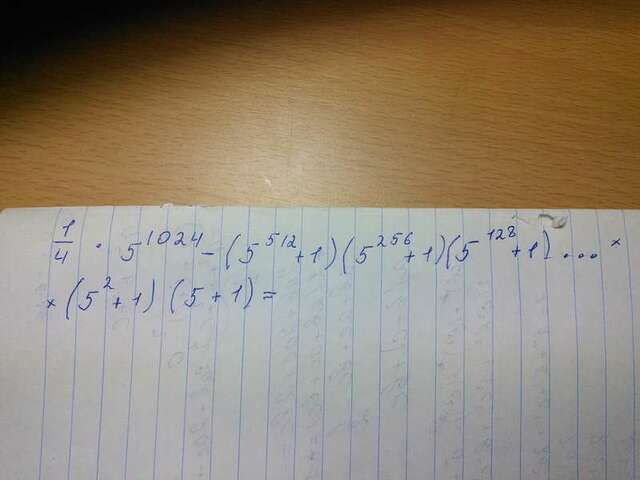 1/4 · 5^1024 - (5^512 + 1) (5^256 + 1) (5^128 + 1) ... ×
× (5^2 + 1) (5 + 1) =